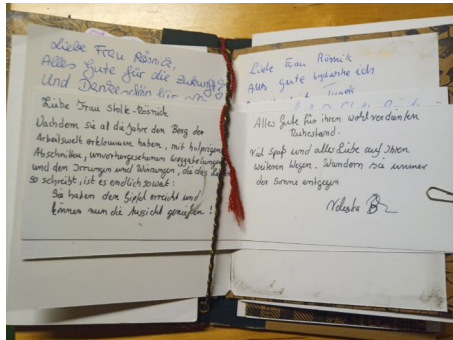 Liebe Frau Rösnik,
Alles Gute für die Zukunft
Und Dankeschön für
Liebe Frau Stolk-Rösnick
Nachdem sie all die Jahre den Berg der
Arbeitswelt erklommen haben, mit holprigen
Abschnitten, unvorhergesehenen Weggabelungen
und den Irrungen und Wirrungen, die das
so schreibt, ist es endlich soweit:
Sie haben den Gipfel erreicht und
können nun die Aussicht genießen!
Liebe Frau Rösnik
Alles Gute wünsche ich
Alles Gute für ihren wohlverdienten
Ruhestand.
Viel Spaß und alles Liebe auf Ihren
weiteren Wegen. Wandern Sie immer
der Sonne entgegen